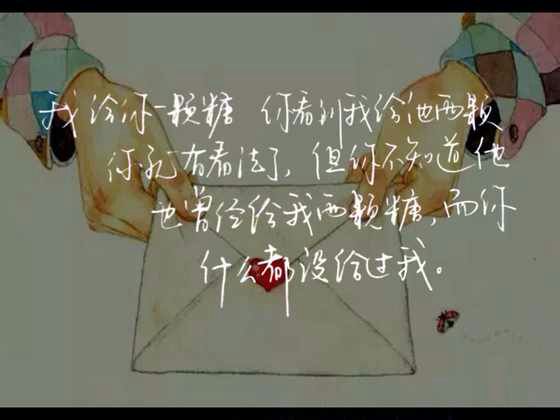 我给你一颗糖 你看到我给他两颗
你就有看法了，但你不知道他
也曾经给我两颗糖，而你
什么都没给过我。